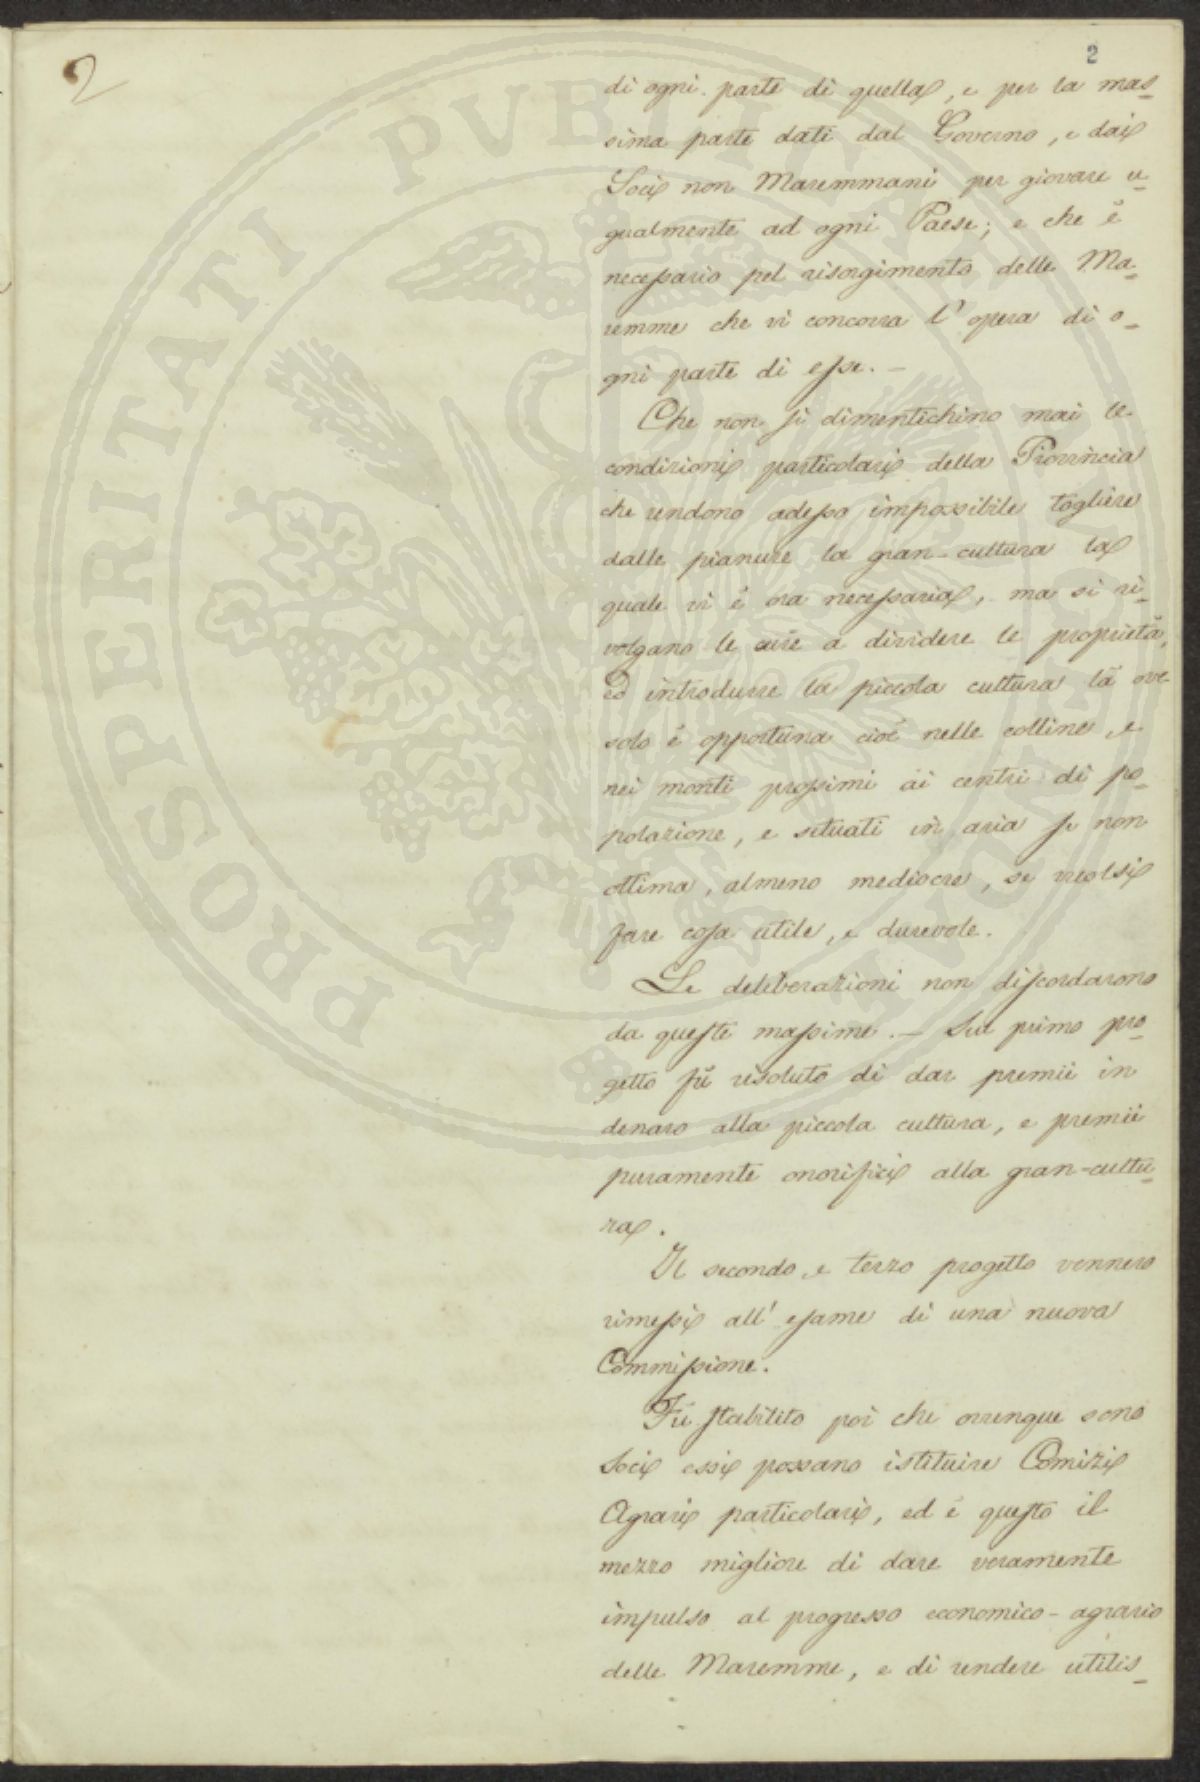 2
2
di ogni parte di quella, e per la mas-
sima parte dati dal Governo, e dai
Socii non Maremmani per giovare u-
gualmente ad ogni Paese; e che è
necessario pel risorgimento delle Ma-
remme che vi concorra l'opera di o-
gni parte di esse. —
Che non si dimentichino mai le
condizioni particolari della Provincia
che rendono adesso impossibile togliere
dalle pianure la gran-cultura la
quale vi è ora necessaria, ma si ri-
volgano le cure a dividere le proprietà,
ed introdurre la piccola cultura là ove
solo è opportuna cioè nelle colline, e
nei monti prossimi ai centri di po-
polazione, e situati in aria se non
ottima, almeno mediocre, se vuolsi
fare cosa utile, e durevole.
Le deliberazioni non discordarono
da queste massime. — Sul primo pro-
getto fù risoluto di dar premii in
denaro alla piccola cultura, e premii
puramente onorifici alla gran-cultu-
ra.
Il secondo, e terzo progetto vennero
rimessi all'esame di una nuova
Commissione.
Fù stabilito poi che ovunque sono
Soci essi possano istituire Comizi
Agrari particolari, ed è questo il
mezzo migliore di dare veramente
impulso al progresso economico-agrario
delle Maremme, e di rendere utilis-
PROSPERITATI PUBLICAE AUGENDAE